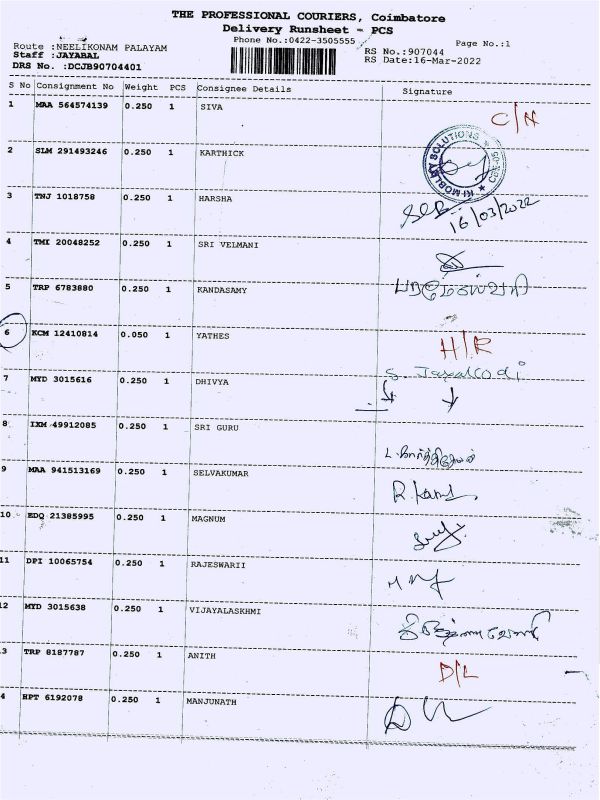 THE PROFESSIONAL COURIERS, Coimbatore
Delivery Runsheet - PCS
Phone No.:0422-3505555
Page No.:1
Route :NEELIKONAM PALAYAM
Staff :JAYABAL
DRS No. :DCJB90704401
RS No.:907044
RS Date:16-Mar-2022
S No Consignment No Weight PCS Consignee Details Signature
1 MAA 564574139 0.250 1 SIVA C/N
2 SLM 291493246 0.250 1 KARTHICK
KI MOBILITY SOLUTIONS
3 TNJ 1018758 0.250 1 HARSHA 16/03/2022
4 TMI 20048252 0.250 1 SRI VELMANI
5 TRP 6783880 0.250 1 KANDASAMY
6 KCM 12410814 0.050 1 YATHES H/R
7 MYD 3015616 0.250 1 DHIVYA S.
8 IXM 49912085 0.250 1 SRI GURU
9 MAA 941513169 0.250 1 SELVAKUMAR
10 EDQ 21385995 0.250 1 MAGNUM
11 DPI 10065754 0.250 1 RAJESWARII
2 MYD 3015638 0.250 1 VIJAYALASKHMI
3 TRP 8187787 0.250 1 ANITH D/L
4 HPT 6192078 0.250 1 MANJUNATH